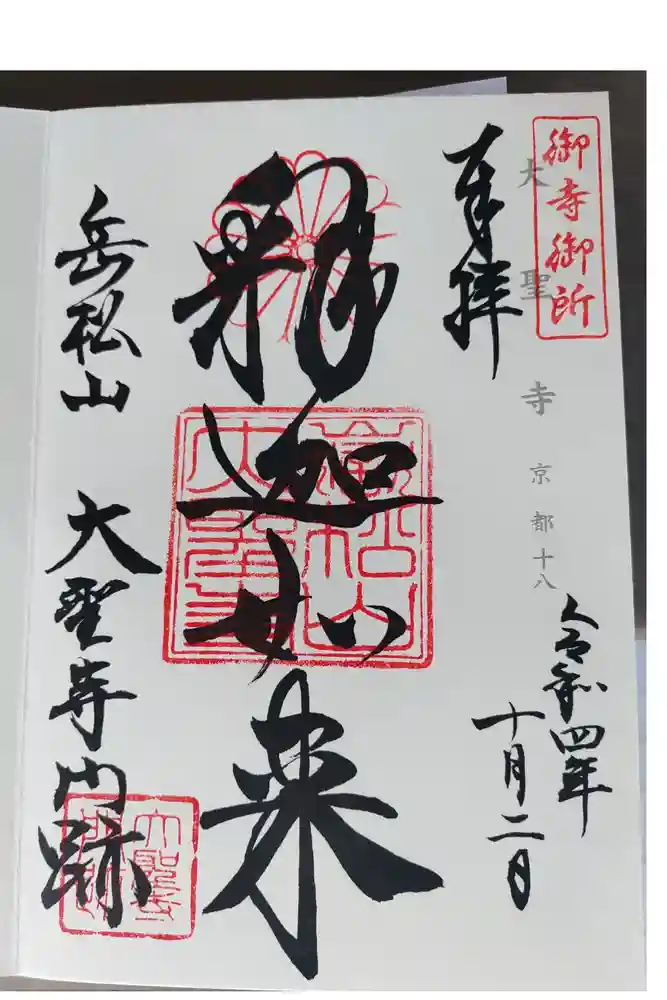 御寺御所
大聖寺 京都十八
奉拝
令和四年
十月二日
釋迦如来
岳松山
大聖寺門跡
岳松山
大聖寺